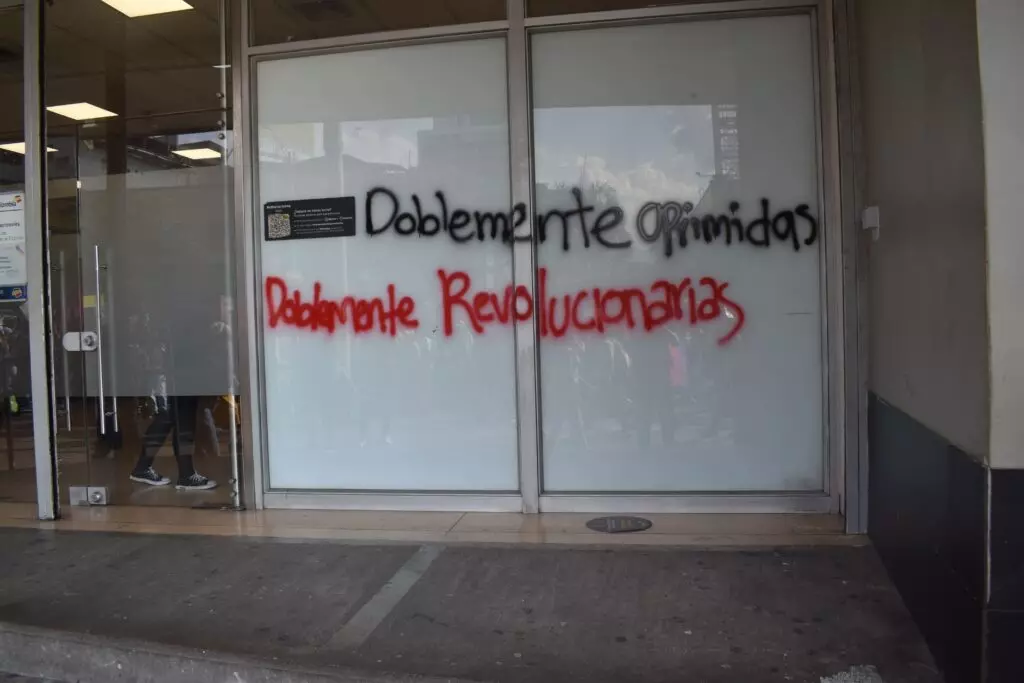 Doblemente oprimidas
Doblemente Revolucionarias